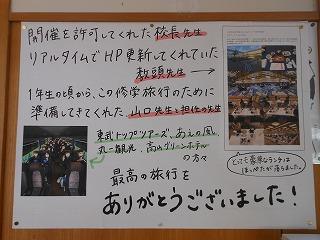 開催を許可してくれた 校長先生
リアルタイムでHP更新してくれていた
教頭先生 →
1年生の頃から、この修学旅行のために
準備してきてくれた 山口先生と担任の先生
東武トップツアーズ、あえの風
丸一観光、高山グリーンホテル
の方々
最高の旅行を
ありがとうございました!
とっても豪華なランチは
ほっぺたが落ちました。